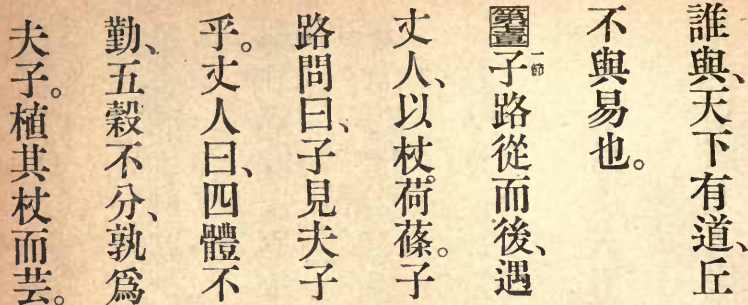 誰與、天下有道、丘
不與易也。
第七章 一節 子路從而後、遇
丈人、以杖荷蓧。子
路問曰、子見夫子
乎。丈人曰、四體不
勤、五穀不分、孰爲
夫子。植其杖而芸。